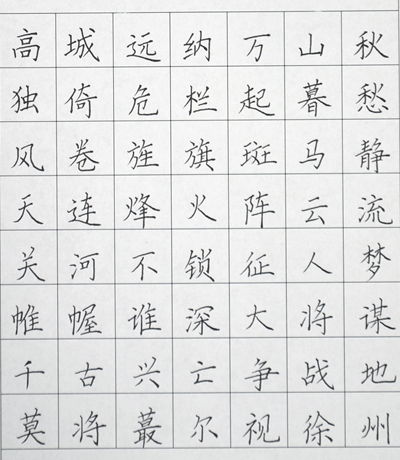 高城远纳万山秋
独倚危栏起暮愁
风卷旌旗斑马静
天连烽火阵云流
关河不锁征人梦
帷幄谁深大将谋
千古兴亡争战地
莫将蕞尔视徐州